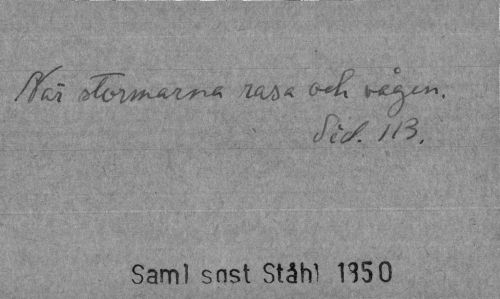 När stormarna rasa och vågen.
Sid. 113.
Saml snst Ståhl 1350